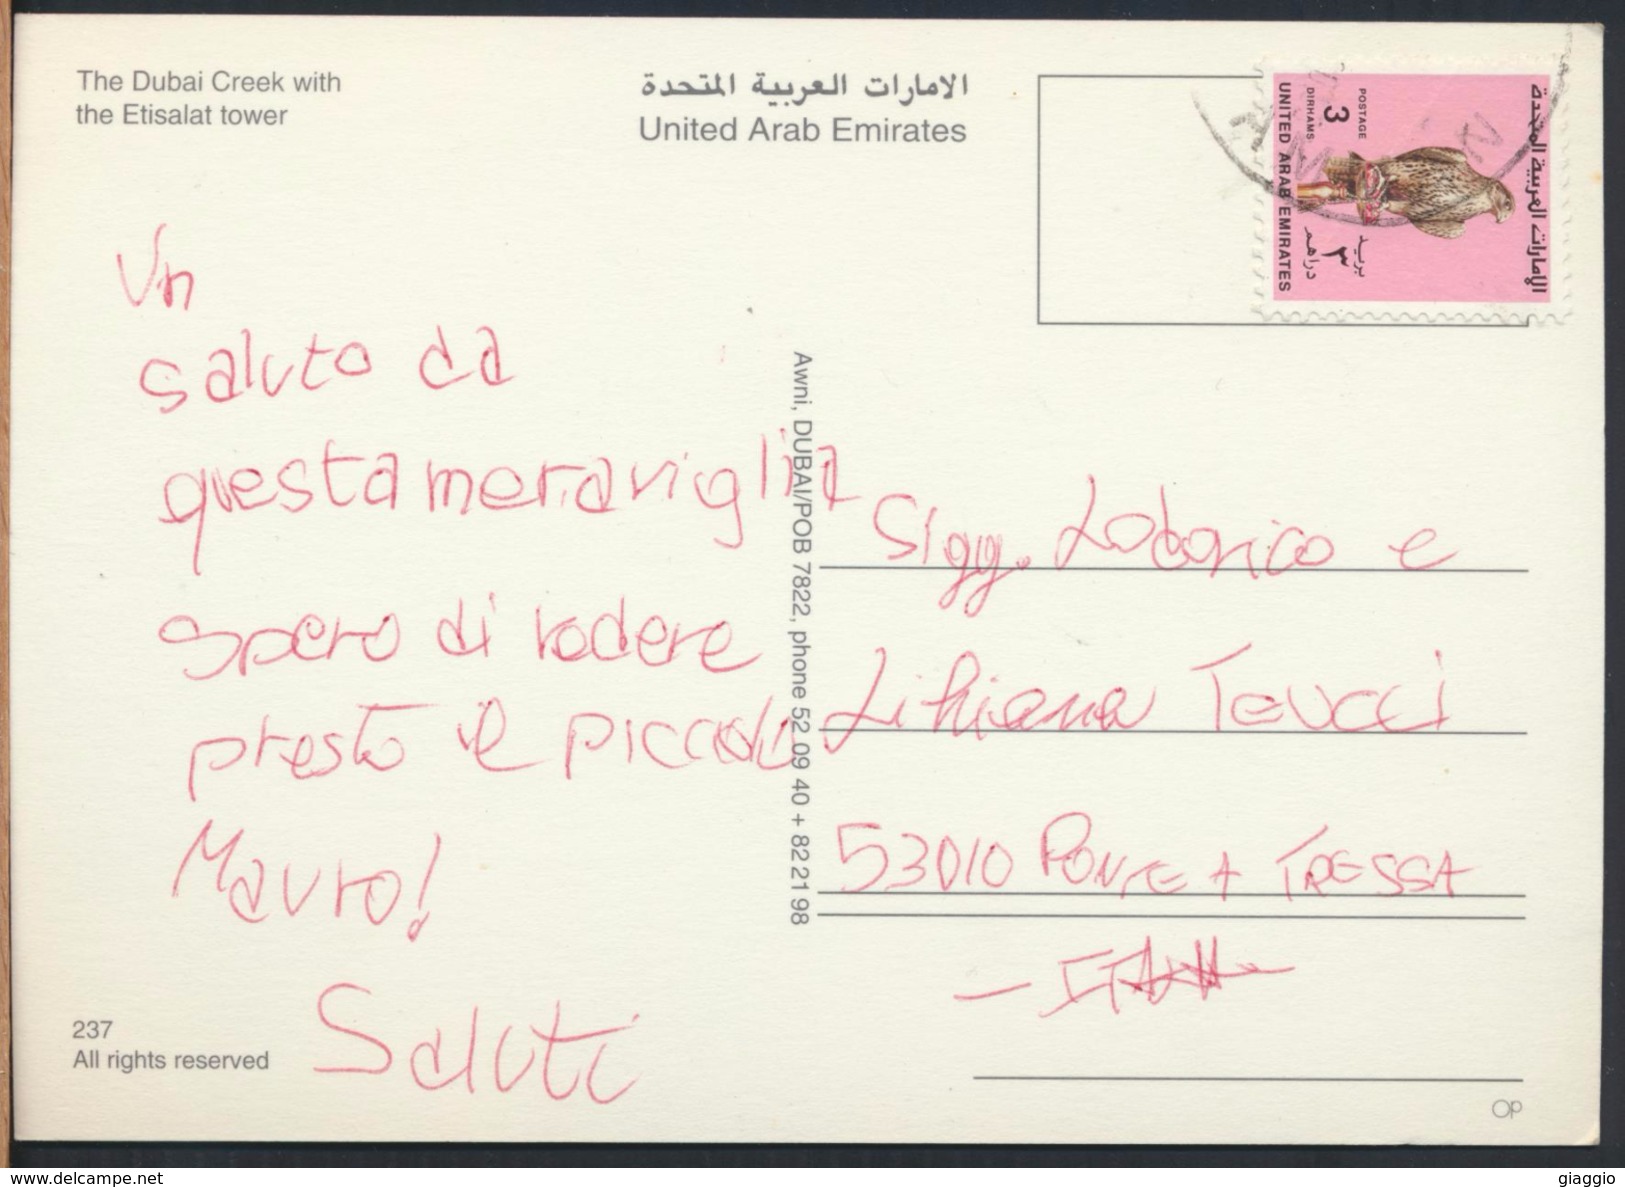 The Dubai Creek with
the Etisalat tower
الامارات العربية المتحدة
United Arab Emirates
الإمارات العربية المتحدة
POSTAGE
3
DIRHAMS
بريد
٣
دراهم
UNITED ARAB EMIRATES
Un
saluto da
questa meraviglia
spero di vedere
presto il piccolo
Mauro!
Saluti
Awni, DUBAI/POB 7822, phone 52 09 40 + 82 21 98
Sigg. Lodorico e
Liliana Teucci
53010 PONTE A TRESSA
- ITALIA
237
All rights reserved
OP
delcampe.net
giaggio